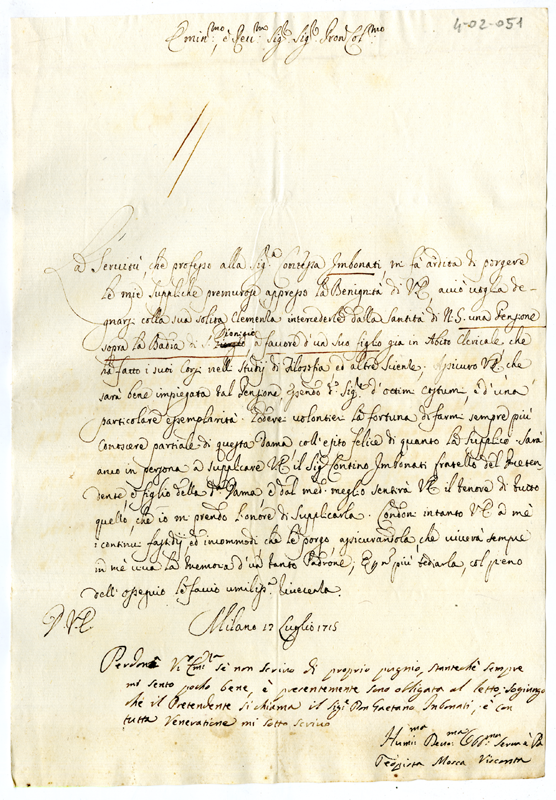 4-02-051
Emin:mo, è Rev:mo Sig:r Sig:r Pron Col:mo
La Servitù, che professo alla Sig.ra Contessa Imbonati, mi fà ardita di porgere
le mie suppliche premurose appresso la Benignità di V.E. acciò voglia de=
gnarsi colla sua solita Clemenza intercederle dalla Santità di N.S. una Pensione
sopra la Badia di S. Dionigio à favore d'un suo figlio già in Abito Clericale, che
hà fatto i suoi Corsi nelli Studj di Filosofia ed altre Scienze. Assicuro V.E. che
sarà bene impiegata dal Pensione essendo d.o Sig.r d'ottimi costumi, e d'una
particolare esemplarità. Goderei volontieri la fortuna di farmi sempre più
conoscere partiale di questa Dama coll'esito felice di quanto La Supplico. Sarà
anco in persona à supplicare V.E. il Sig.r Contino Imbonati fratello del Preten=
dente e figlio della d.a Dama è dal med.o meglio sentirà V.E. il tenore di tutto
quello, che io mi prendo l'onore di Supplicarla. Condoni intanto V.E. à me
i continui fastidij ed incommodi che le porgo assicurandola che viverà sempre
in me viva la memoria d'un tanto Padrone, E p n più tediarla, col pieno
dell'ossequio le faccio umiliss.a riverenza.
D V.E.
Milano 17 Luglio 1715
Perdoni V.ra Em.za se non scrivo di proprio pugnio, stante che sempre
mi sento pocho bene, è presentemente sono obligata al letto; sogiungo
che il Pretendente si chiama il Sig.r Don Gaetano Imbonati, è con
tutta Veneratione mi sotto scrivo
Humil:ma Devo:ma Obb:ma Serva è Pa
Teresa Mosca Visconta